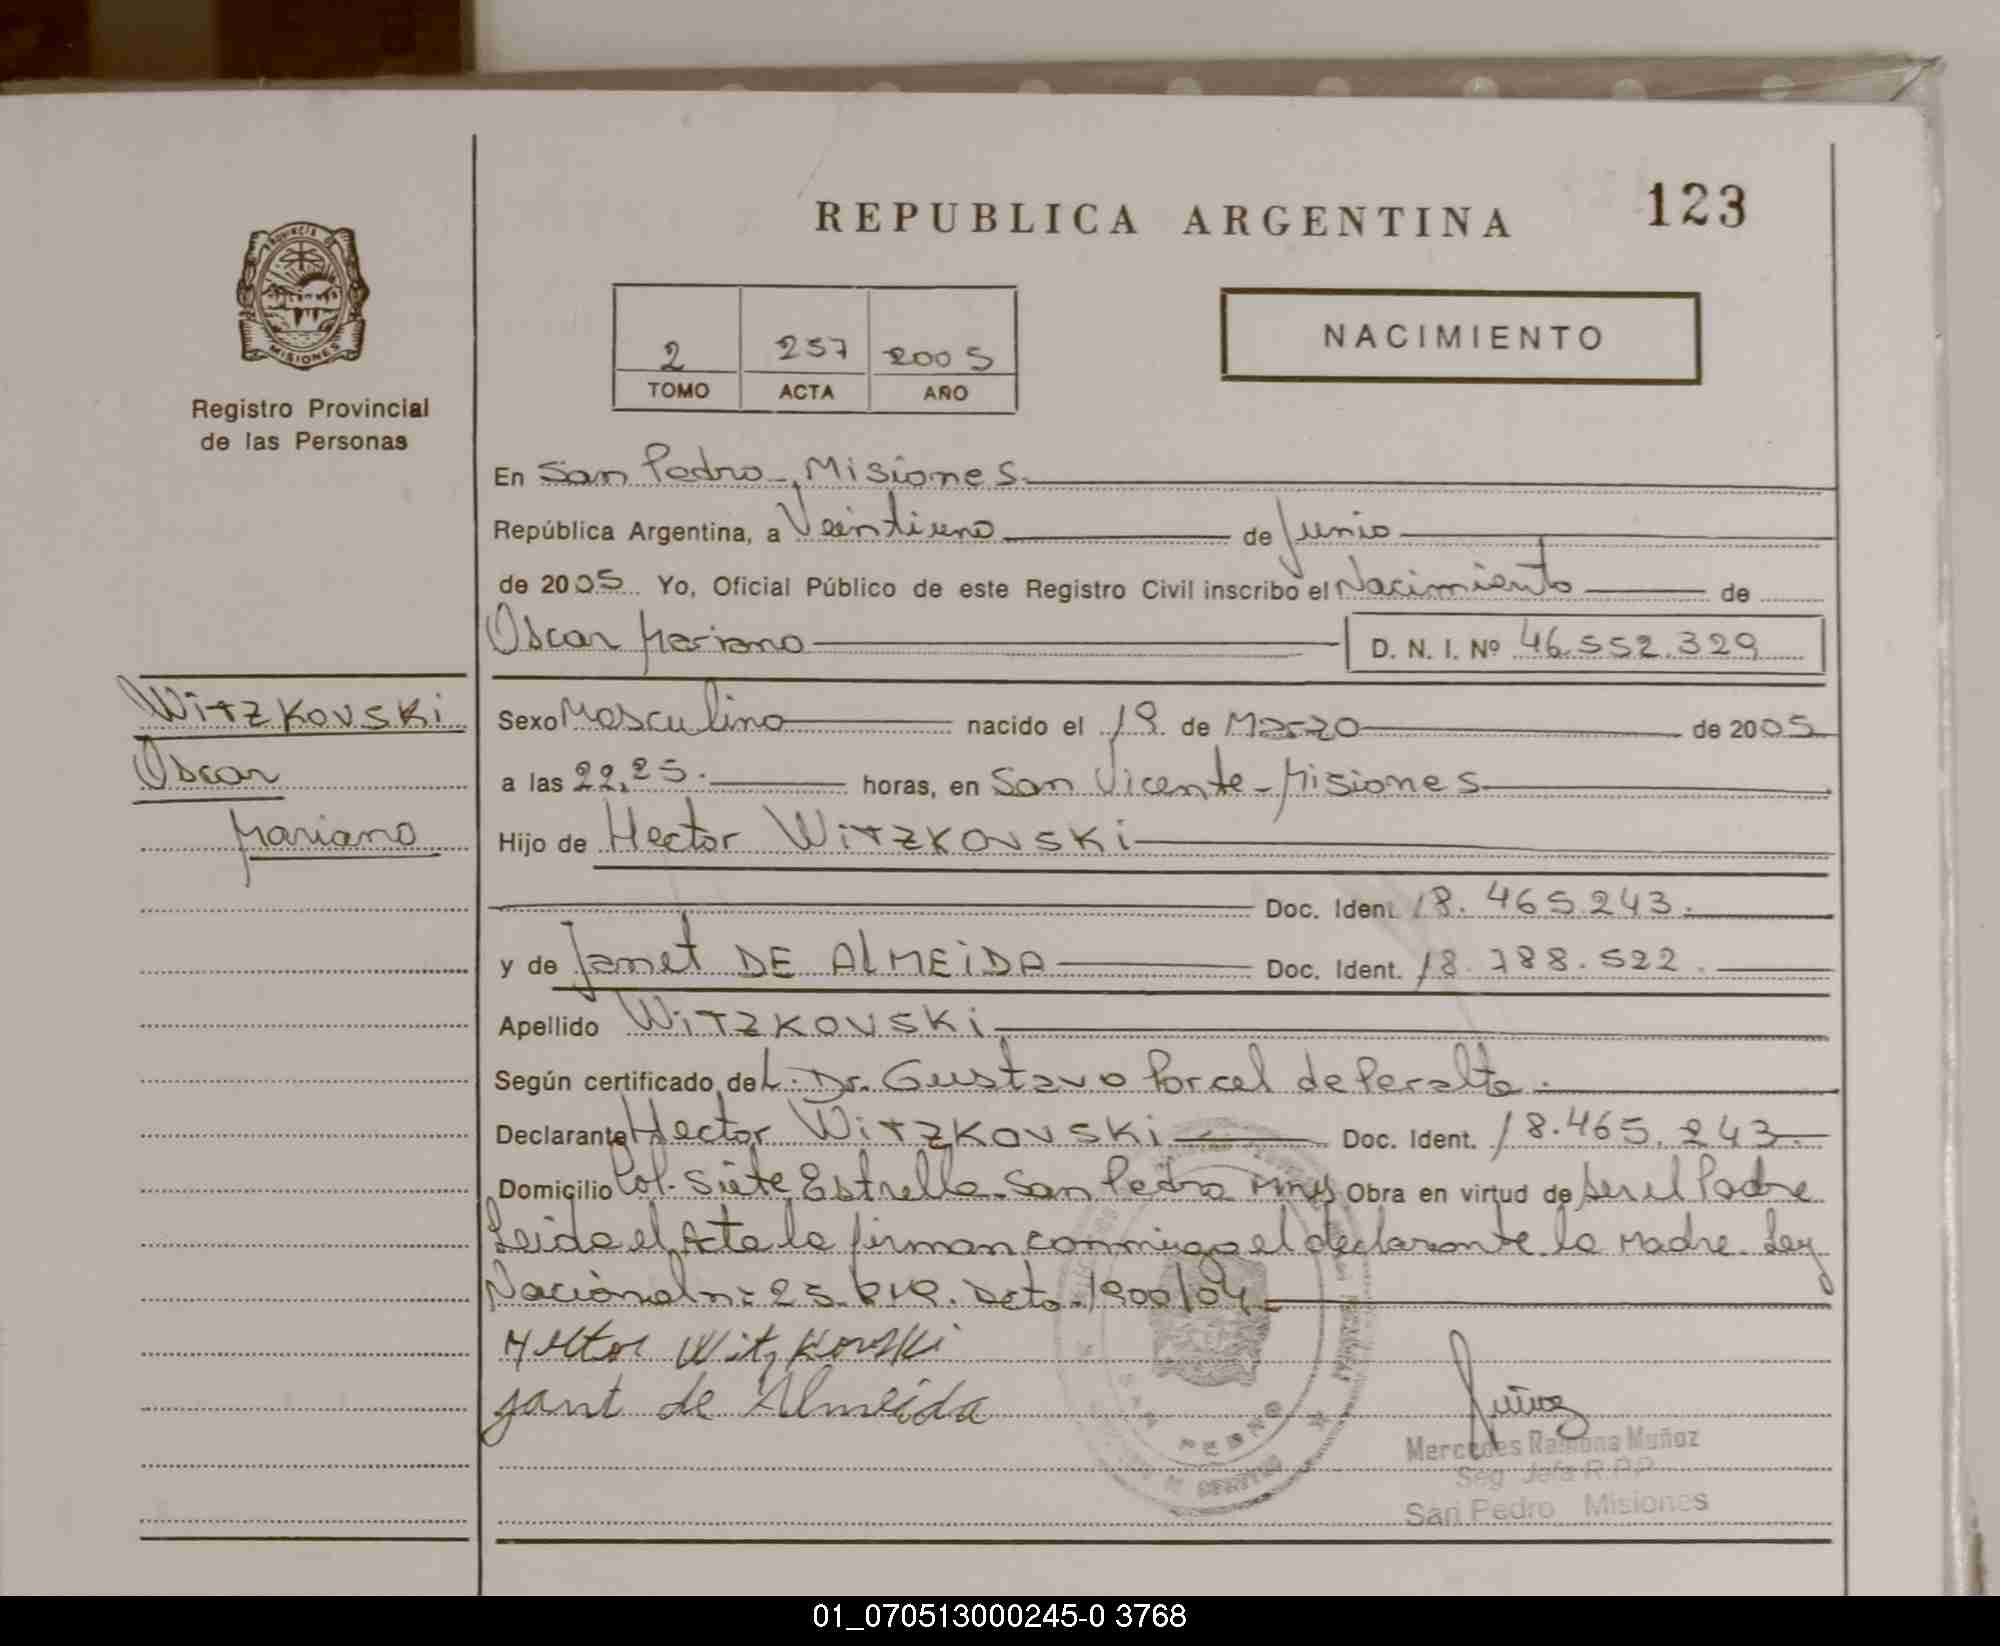 REPUBLICA ARGENTINA
123
PROVINCIA DE
MISIONES
Registro Provincial
de las Personas
2 257 2005
TOMO ACTA AÑO
NACIMIENTO
En San Pedro - Misiones
República Argentina, a Veintiuno de Junio
de 2005 Yo, Oficial Público de este Registro Civil inscribo el Nacimiento de
Oscar Mariano D. N. I. Nº 46.552.329
WiTZKOVSKi
Oscar
Mariano
Sexo Masculino nacido el 19 de Marzo de 2005
a las 22,25. horas, en San Vicente - Misiones
Hijo de Hector WiTZKOVSKi
Doc. Ident. 18.465.243.
y de Janet DE ALMEiDA Doc. Ident. 18.788.522.
Apellido WiTZKOVSKi
Según certificado de L. Dr. Gustavo Porcel de Peralta.
Declarante Hector WiTZKOVSKi Doc. Ident. 18.465.243.
Domicilio Col. Siete Estrella - San Pedro Mnes Obra en virtud de ser el Padre
Leida el Acta la firman conmigo el declarante la Madre. Ley
Nacional n: 25. Dcto. 1900/04
Hector Witzkovski
jant de Almeida
SAN PEDRO
Muñoz
Mercedes Ramona Muñoz
Seg. Jefa R.P.P.
San Pedro Misiones
01_070513000245-0 3768